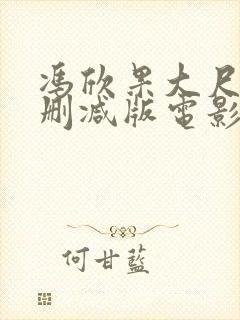 馮欣果大尺
刪減版電影
何甘藍